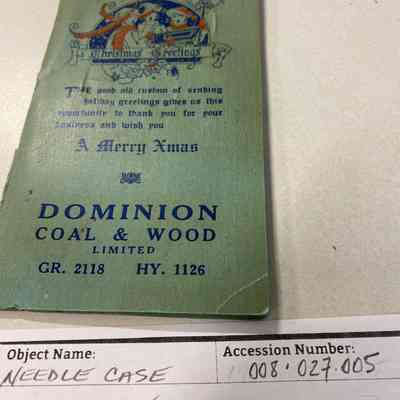 Christmas Greetings
THE good old custom of sending
holiday greetings gives us this
opportunity to thank you for your
business and wish you
A Merry Xmas
DOMINION
COAL & WOOD
LIMITED
GR. 2118 HY. 1126
Object Name: Accession Number:
NEEDLE CASE 008.027.005